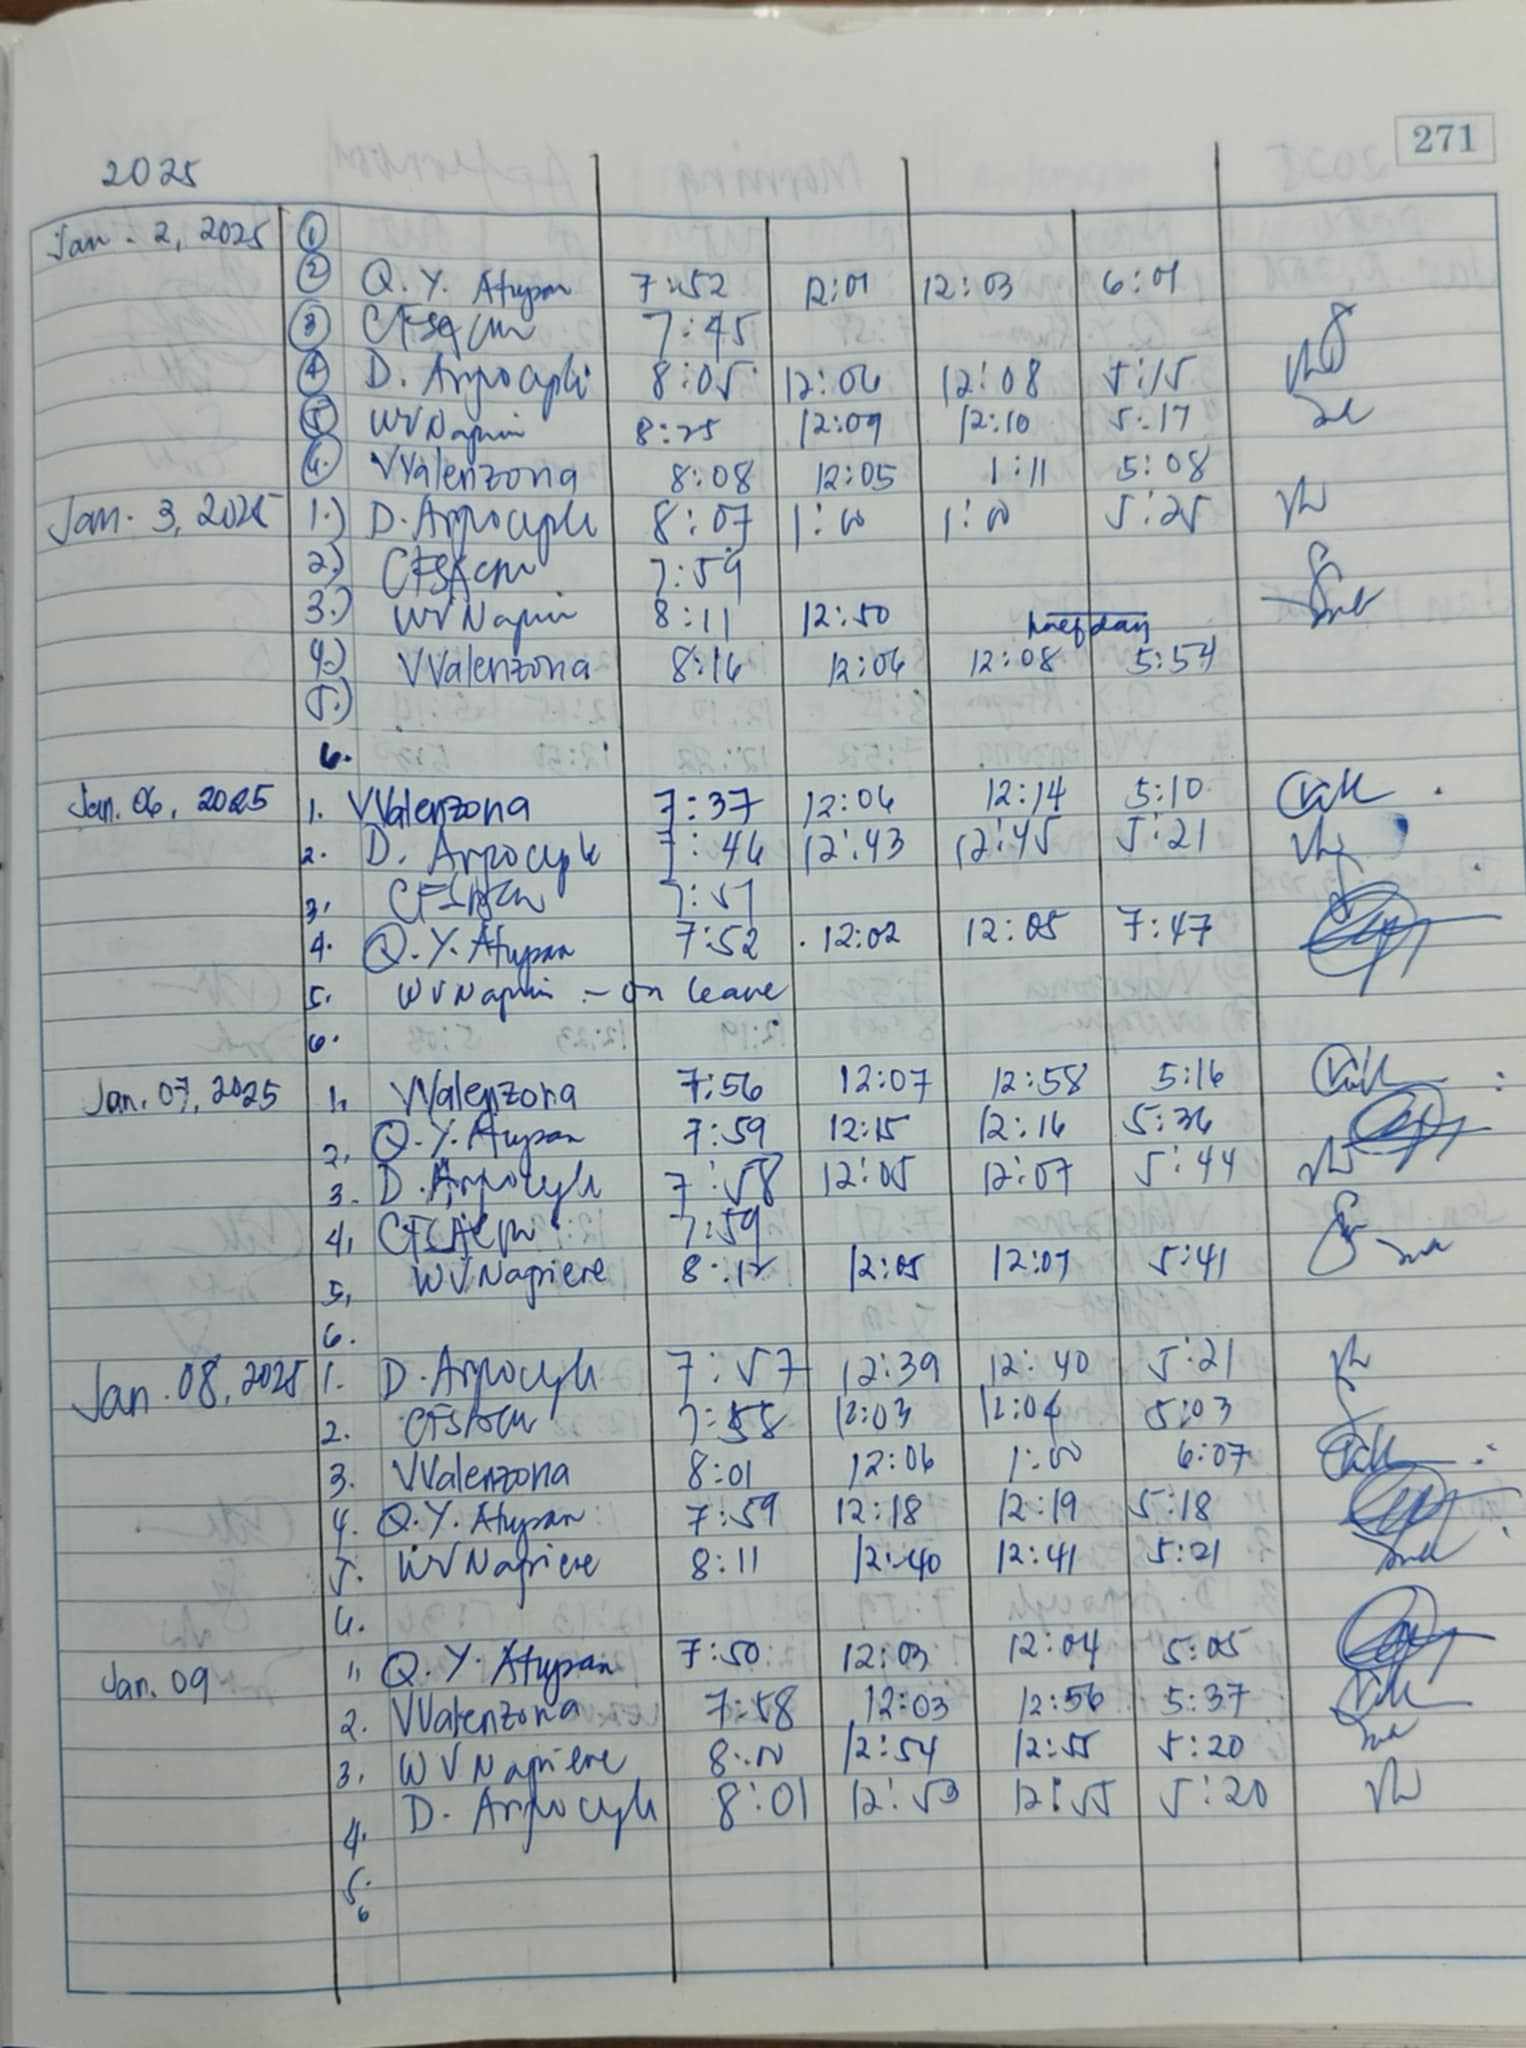 271
2025
Jan. 2, 2025 ①
② Q. Y. Atupan 7:52 12:01 12:03 6:01
③ 7:45
④ D. 8:05 12:06 12:08 5:15
⑤ WV Napiri 8:25 12:09 12:10 5:17
6. VValenzona 8:08 12:05 1:11 5:08
Jan. 3, 2025 1.) D. 8:07 1:00 1:00 5:25
2.) 7:59
3.) WV Napiri 8:11 12:50 halfday
4.) VValenzona 8:16 12:06 12:08 5:54
5.)
6.
Jan. 06, 2025 1. VValenzona 7:37 12:06 12:14 5:10
2. D. 7:46 12:43 12:45 5:21
3. 7:51
4. Q. Y. Atupan 7:52 12:02 12:05 7:47
5. WV Napiri - on leave
6.
Jan. 07, 2025 1. VValenzona 7:56 12:07 12:58 5:16
2. Q. Y. Atupan 7:59 12:15 12:16 5:36
3. D. 7:58 12:05 12:07 5:44
4. 7:59
5. WV Napiere 8:12 12:05 12:07 5:41
6.
Jan. 08, 2025 1. D. 7:57 12:39 12:40 5:21
2. 7:58 12:03 12:04 5:03
3. VValenzona 8:01 12:06 1:00 6:07
4. Q. Y. Atupan 7:59 12:18 12:19 5:18
5. WV Napiere 8:11 12:40 12:41 5:21
6.
Jan. 09 1. Q. Y. Atupan 7:50 12:03 12:04 5:05
2. VValenzona 7:58 12:03 12:56 5:37
3. WV Napiere 8:00 12:54 12:55 5:20
4. D. 8:01 12:53 12:55 5:20
5.
6